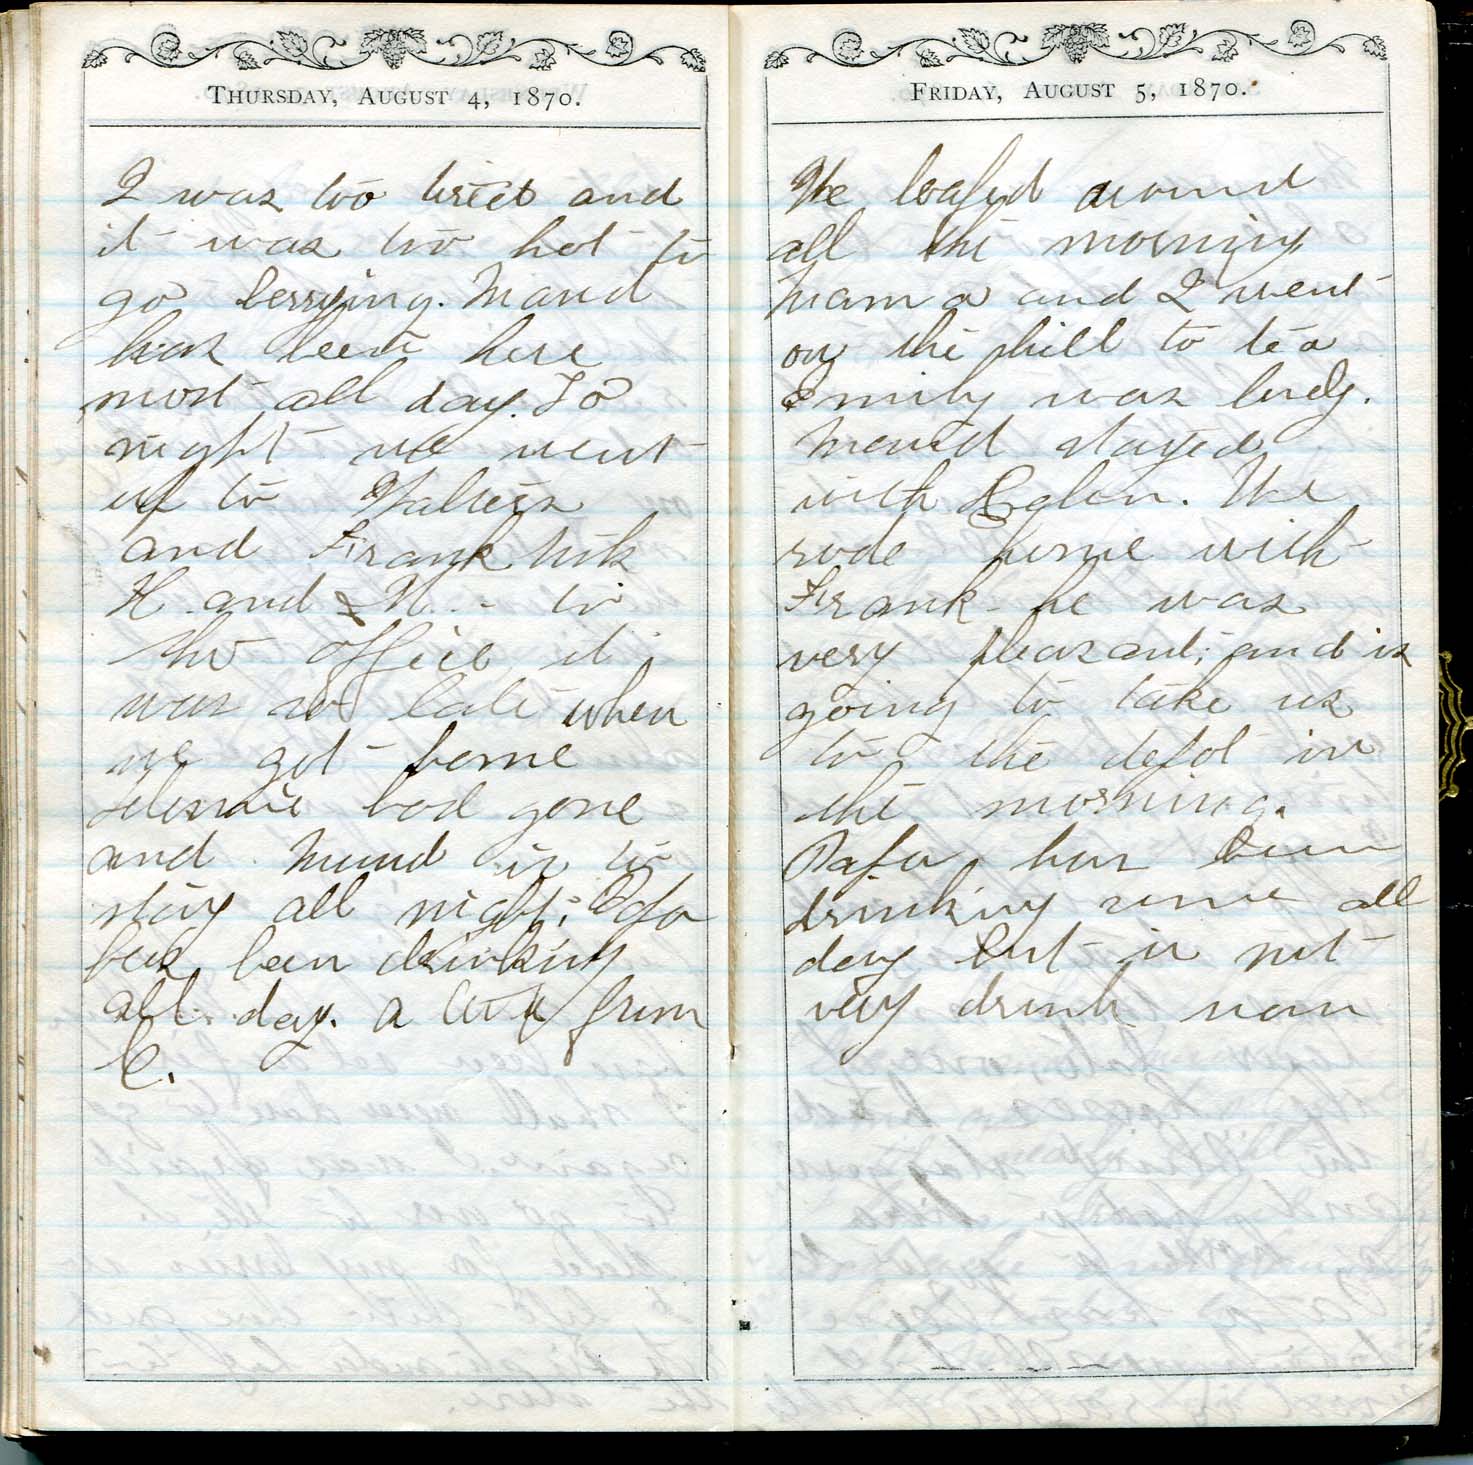 THURSDAY, AUGUST 4, 1870.
I was too tired and
it was too hot to
go berrying. Maud
has been here
most all day. To
night we went
up to Walters
and Frank took
H. and M. to
the office it
was so late when
we got home
had gone
and Maud is to
stay all night; Papa
has been drinking
all day. a from
C.
FRIDAY, AUGUST 5, 1870.
We loafed around
all the morning
Mama and I went
on the hill to tea
Emily was lucky.
Maud stayed
with Helen. We
rode home with
Frank he was
very pleasant; and is
going to take us
to the depot in
the morning.
Papa has been
drinking some all
day but is not
very drunk now